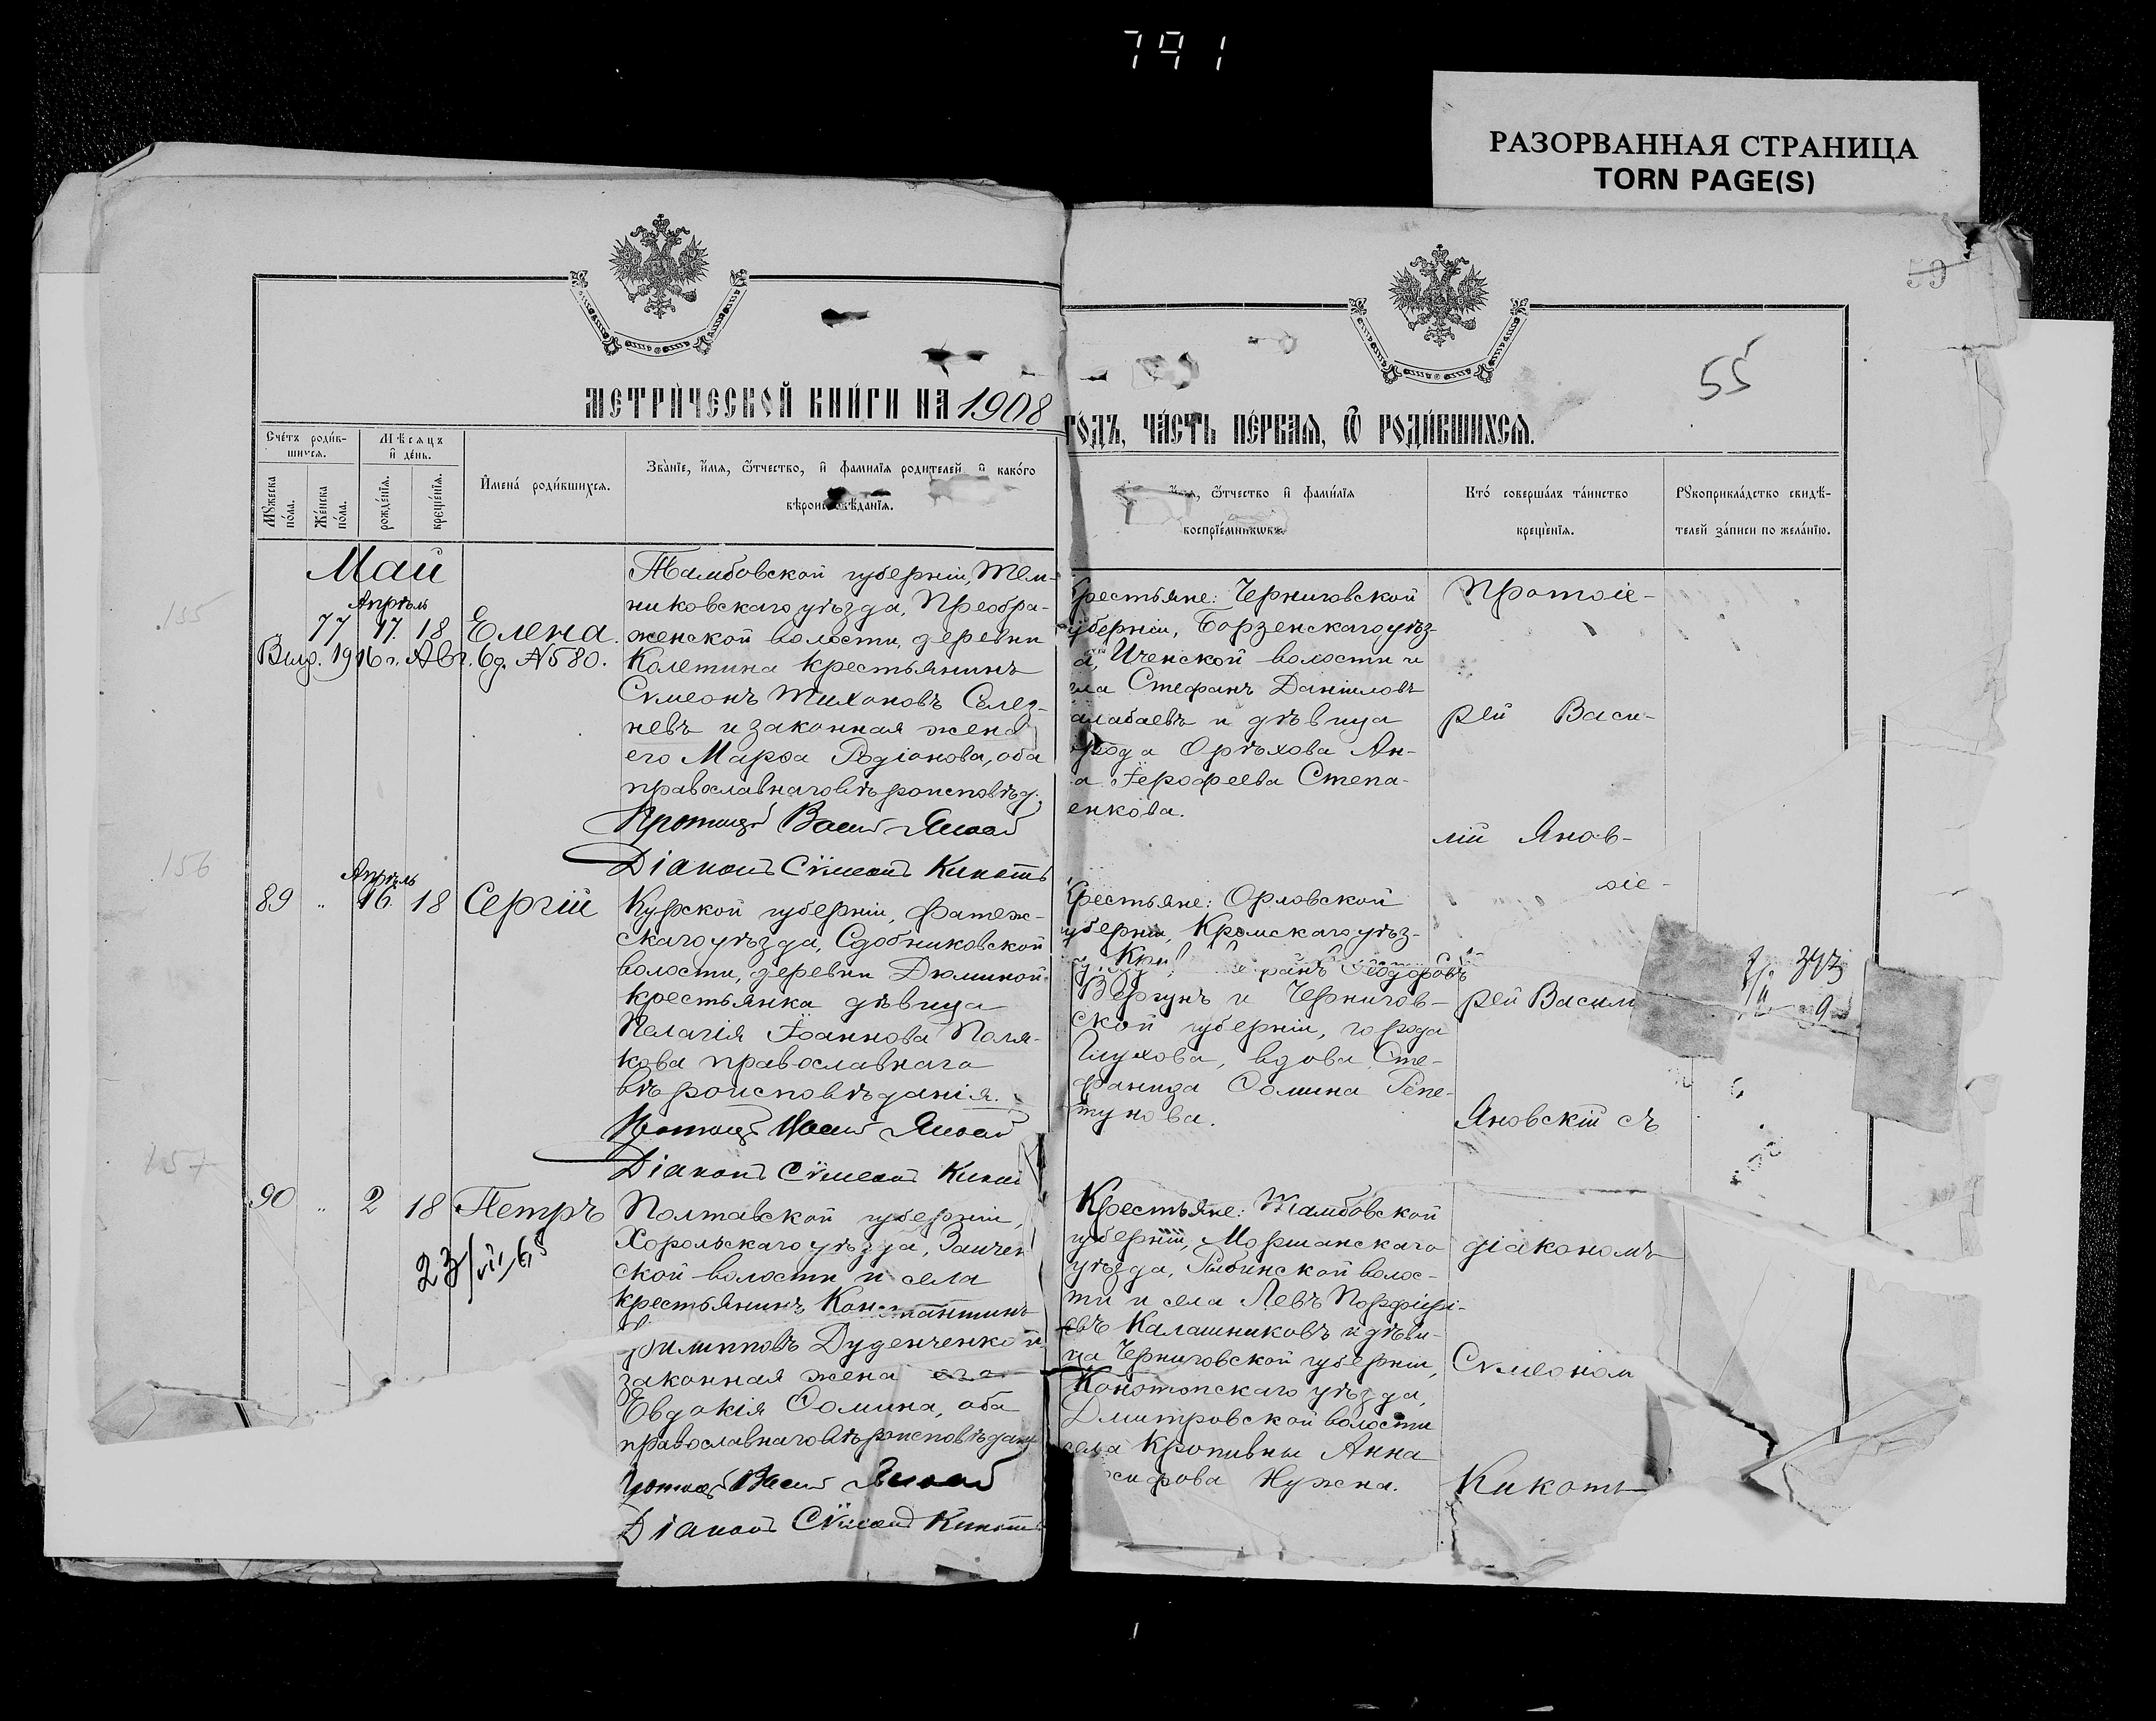 791
РАЗОРВАННАЯ СТРАНИЦА
TORN PAGE(S)
59
55
МЕТРИ́ЧЕСКОЙ КНИ́ГИ НА 1908
ГО́ДЪ, ЧА́СТЬ ПЕ́РВАЯ, Ѿ РОДИ́ВШИХСЯ.
Сче́тъ роди́в-
шихся.
Мѣсяцъ
и де́нь.
Му́жеска
по́ла.
Же́нска
по́ла.
рожде́нїя.
креще́нїя.
И҆мена̀ роди́вшихся.
Зва́нїе, и҆́мя, ѻ҆́тчество, и҆ фами́лїя роди́телей и҆ како́го
вѣроисповѣ́данїя.
и҆́мя, ѻ҆́тчество и҆ фами́лїя
воспрїе́мникѡвъ.
Кто̀ соверша́лъ та́инство
креще́нїя.
Рꙋкоприкла́дство свидѣ́-
телей за́писи по жела́нїю.
Май
155
Апрѣль
77 17. 18 Елена.
Выд. 1916 г. Авг. 6 д. № 580.
Тамбовской губерніи, Тем-
никовскаго уѣзда, Преобра-
женской волости, деревни
Колетина крестьянинъ
Сѵмеонъ Тихоновъ Селез-
невъ и законная жена
его Марѳа Родіонова, оба
православнаго вѣроисповѣд.
Діаконъ Сѵмеонъ Кикоть
рестьяне: Черниговской
уберніи, Борзенскаго уѣз-
а, Иченской волости и
ла Стефанъ Даніиловъ
алабаевъ и дѣвица
рода Орѣхова Ан-
а Іерофеева Степа-
енкова.
Протоіе-
рей Васи-
лій Янов-
156
Апрѣль
89 „ 16. 18 Сергій
Курской губерніи, Фатеж-
скаго уѣзда, Сдобниковской
волости, деревни Дюминой
крестьянка дѣвица
Пелагія Іоаннова Поля-
кова православнаго
вѣроисповѣданія.
Діаконъ Сѵмеонъ Кикоть
рестьяне: Орловской
уберніи, Кромскаго уѣз-
Ѳеодоровъ
Вергунъ и Чернигов-
ской губерніи, города
Глухова, вдова Сте-
фанида Ѳомина Репе-
тунова.
оіе-
рей Васили
Яновскій съ
157
90 „ 2 18 Петръ
23/VII 65
Полтавской губерніи,
Хорольскаго уѣзда, Заичен
ской волости и села
крестьянинъ Константинъ
Филипповъ Дуденченко и
законная жена его
Евдокія Ѳомина, оба
православнаго вѣроисповѣдані
Діаконъ Сѵмеонъ Кикоть
Крестьяне: Тамбовской
губерніи, Моршанскаго
уѣзда, Рыбинской волос-
ти и села Левъ Порфирі-
евъ Калашниковъ и дѣви-
ца Черниговской губерніи,
Конотопскаго уѣзда,
Дмитровской волости
села Кропивны Анна
сифова Нужна.
діакономъ
Сѵмеоном
Кикоть